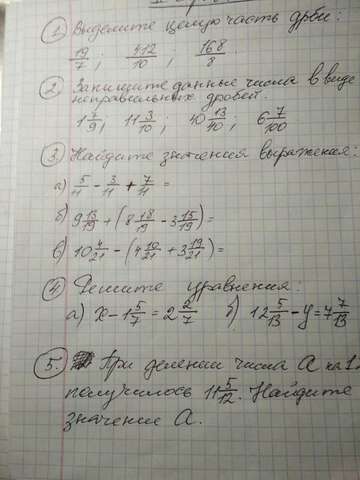 1. Выделите целую часть дроби:
19/7; 412/10; 168/8.
2. Запишите данные числа в виде
неправильных дробей.
1 7/9; 11 3/10; 40 13/40; 6 7/100
3. Найдите значения выражения:
а) 5/11 - 3/11 + 7/11 =
б) 9 13/19 + (8 18/19 - 3 15/19) =
в) 10 4/21 - (4 10/21 + 3 19/21) =
4. Решите уравнения:
а) x - 1 5/7 = 2 2/7 б) 12 5/13 - y = 7 7/13
5. При делении числа а на 1
получилось 11 5/12. Найдите
значение а.